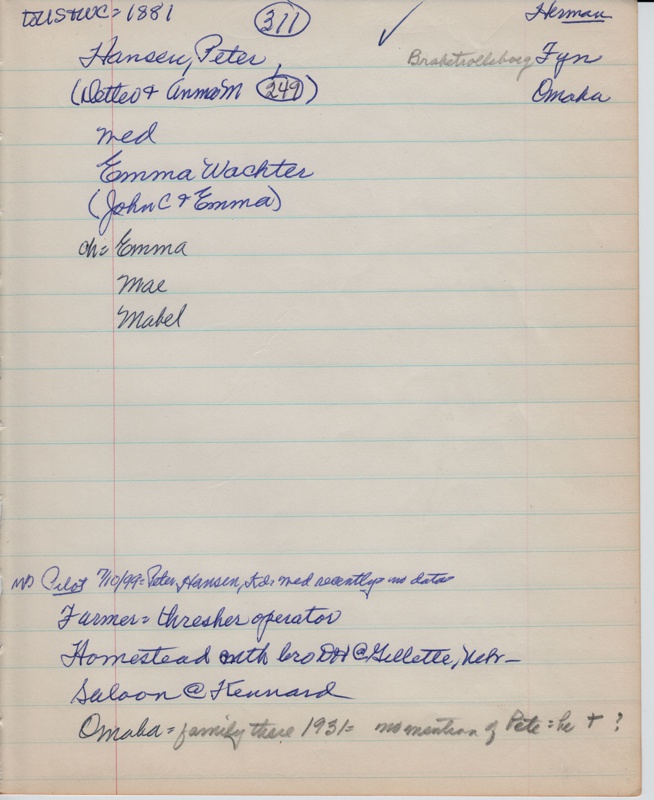 to US & WC = 1881 311 Herman
Hansen, Peter, Brahetrolleborg Fyn
(Detlev & Anna M 249) Omaha
med
Emma Wachter
(John C & Emma)
ch = Emma
Mae
Mabel
Pilot 7/10/99 = Peter Hansen, med recently = no data
Farmer = thresher operator
Homestead with bro @ Gillette, Nebr -
Saloon @ Kennard
Omaha = family there 1931 = no mention of Pete = he + ?